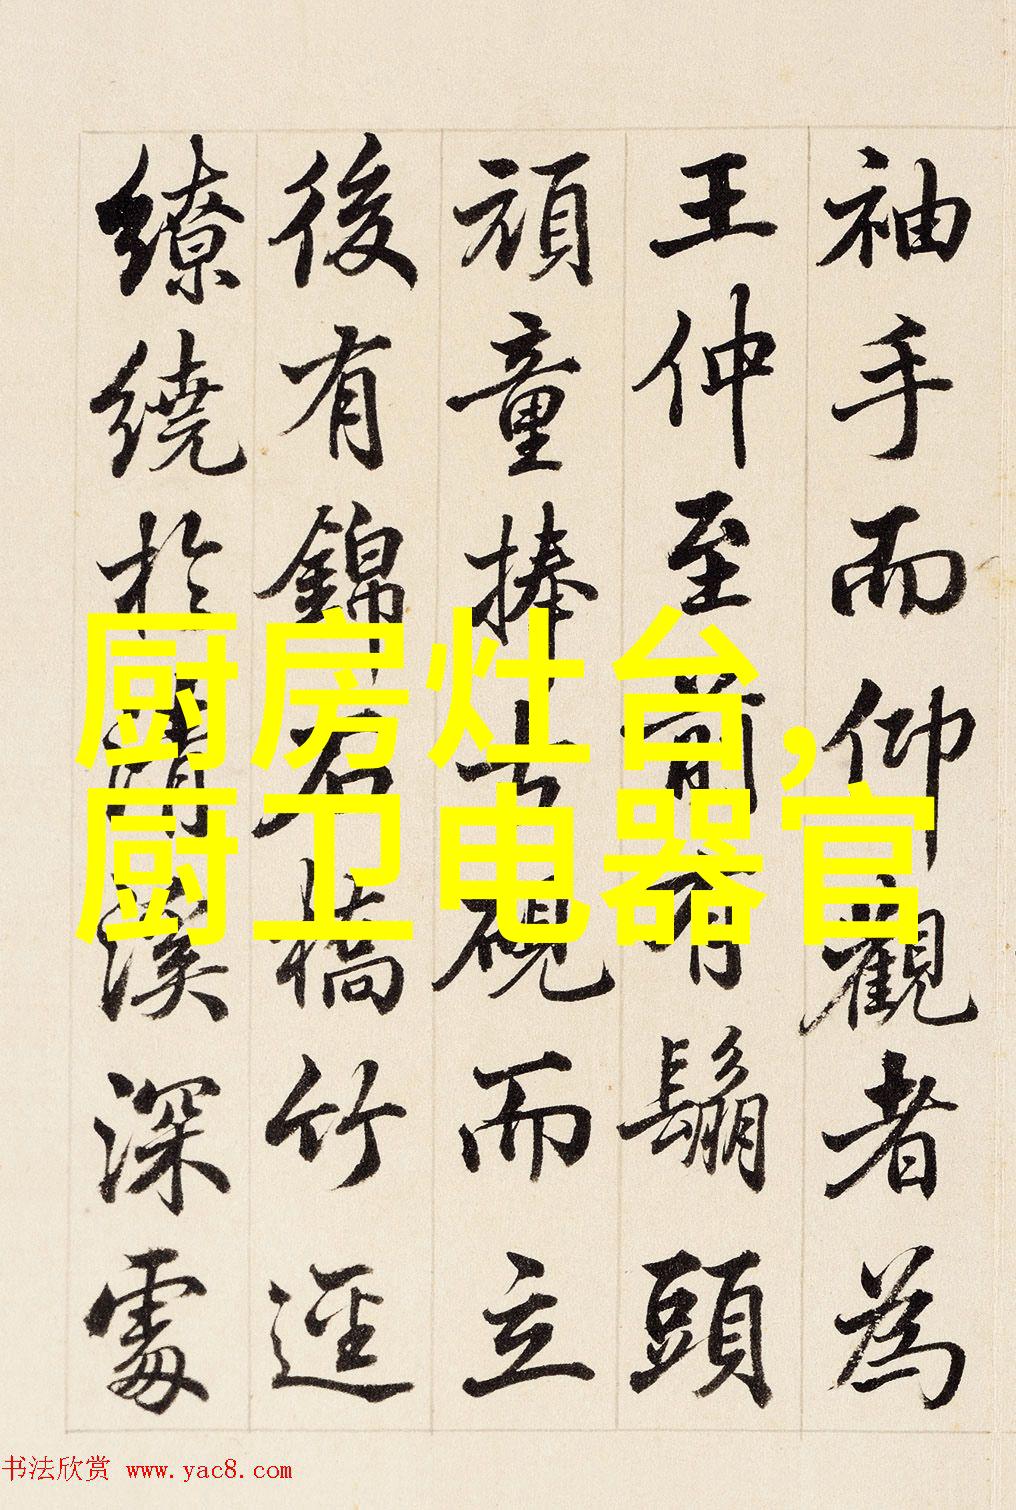 袖手而仰觀者為
王仲至前有鬅頭
頑童捧古硯而立
後有錦石橋竹逕
繚繞於清溪深處
厨房灶台,
厨卫电器官
书法欣赏 www.yac8.com